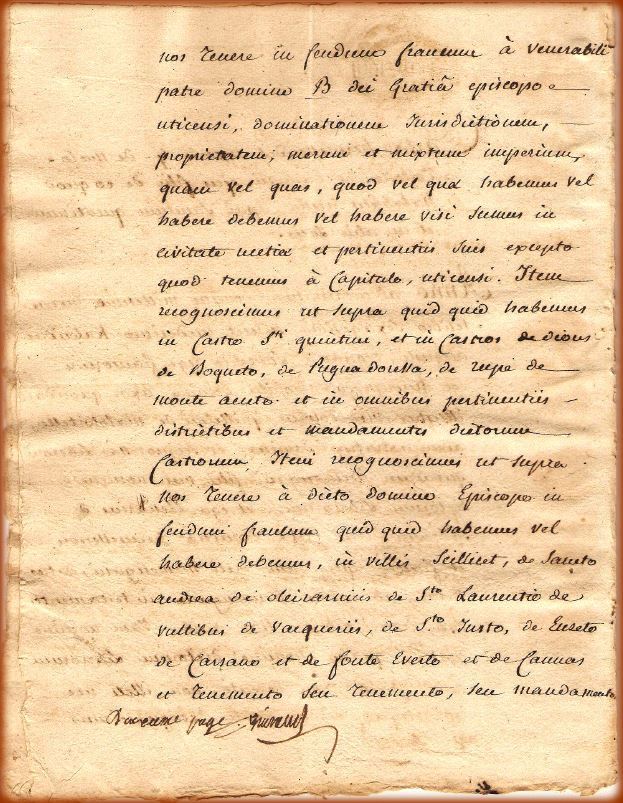 nos tenere in feudum francum à venerabili
patre domino B dei Gratiâ episcopo
uticensi, dominationem Jurisdictionem,
proprietatem, merum et mixtum imperium,
quam vel quas, quod vel quæ habemus vel
habere debemus vel habere visi sumus in
civitate uetiæ et pertinentiis suis excepto
quod tenemus à Capitulo, uticensi. Item
recognoscimus ut supra quid quid habemus
in Castro Sti quintini, et in Castros de dions
de Boqueto, de Pugnadoressa, de rupe de
monte acuto et in omnibus pertinentiis
districtibus et mandamentis dictorum
Castrorum. Item recognoscimus ut supra
nos tenere à dicto domino Episcopo in
feudum francum quid quid habemus vel
habere debemus, in villis Scillicet, de Sancto
andrea de de Sto Laurentio de
de Vacqueriis, de Sto Justo, de Euzeto
de Carsano et de fonte Everto et de Cannas
et tenemento seu tenemento, seu mandamento
page